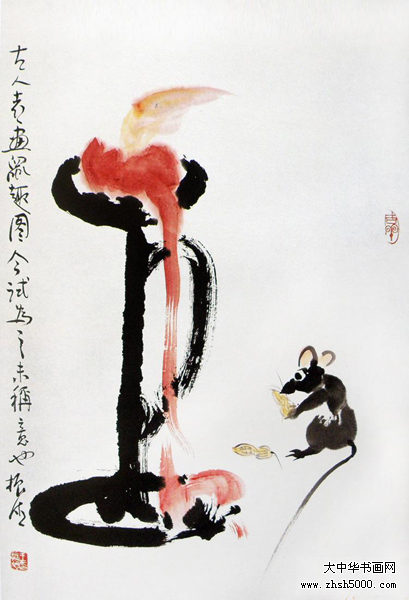 古人喜画鼠趣图今试为之未称意也
大中华书画网
www.zhsh5000.com